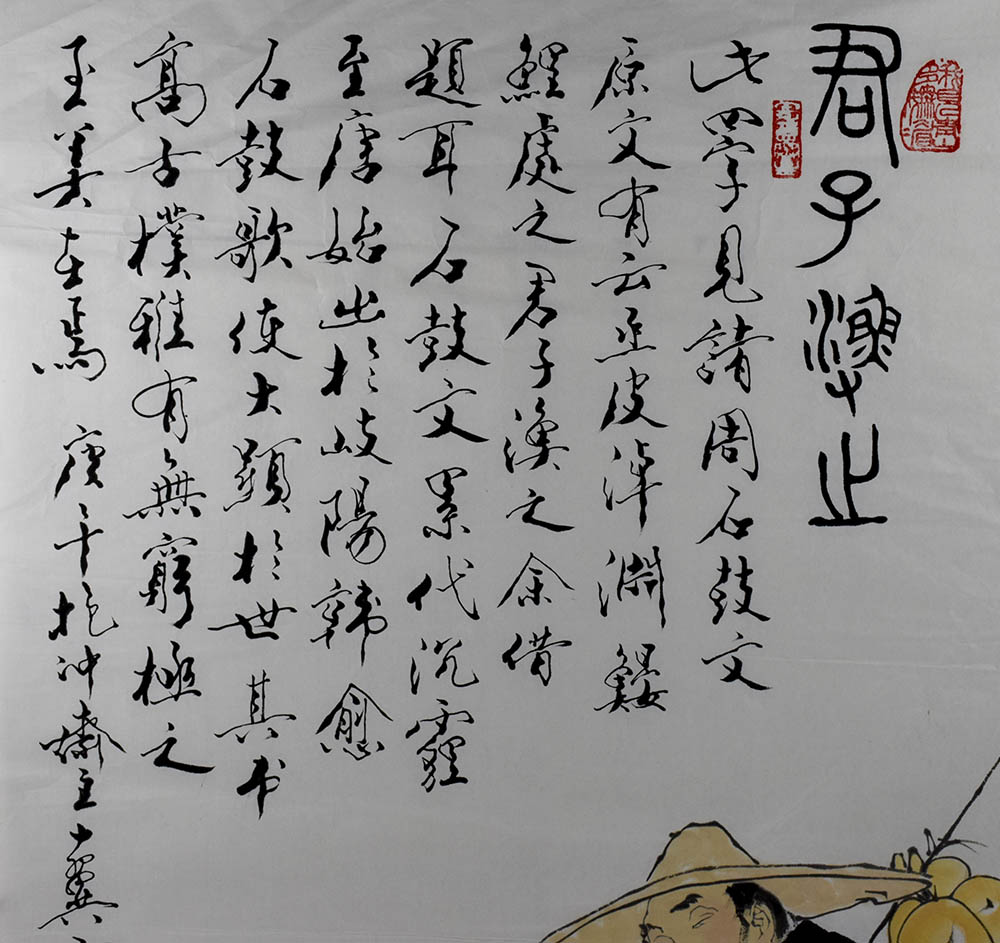 君子漁之
此四字見諸周石鼓文
原文有云丞皮淖淵鰋
鯉處之君子漁之余借
題耳石鼓文累代沉霾
至唐始出於岐陽韓愈
石鼓歌使大顯於世其书
高古樸雅有無窮極之
至美在焉 庚午抱冲齋主十翼